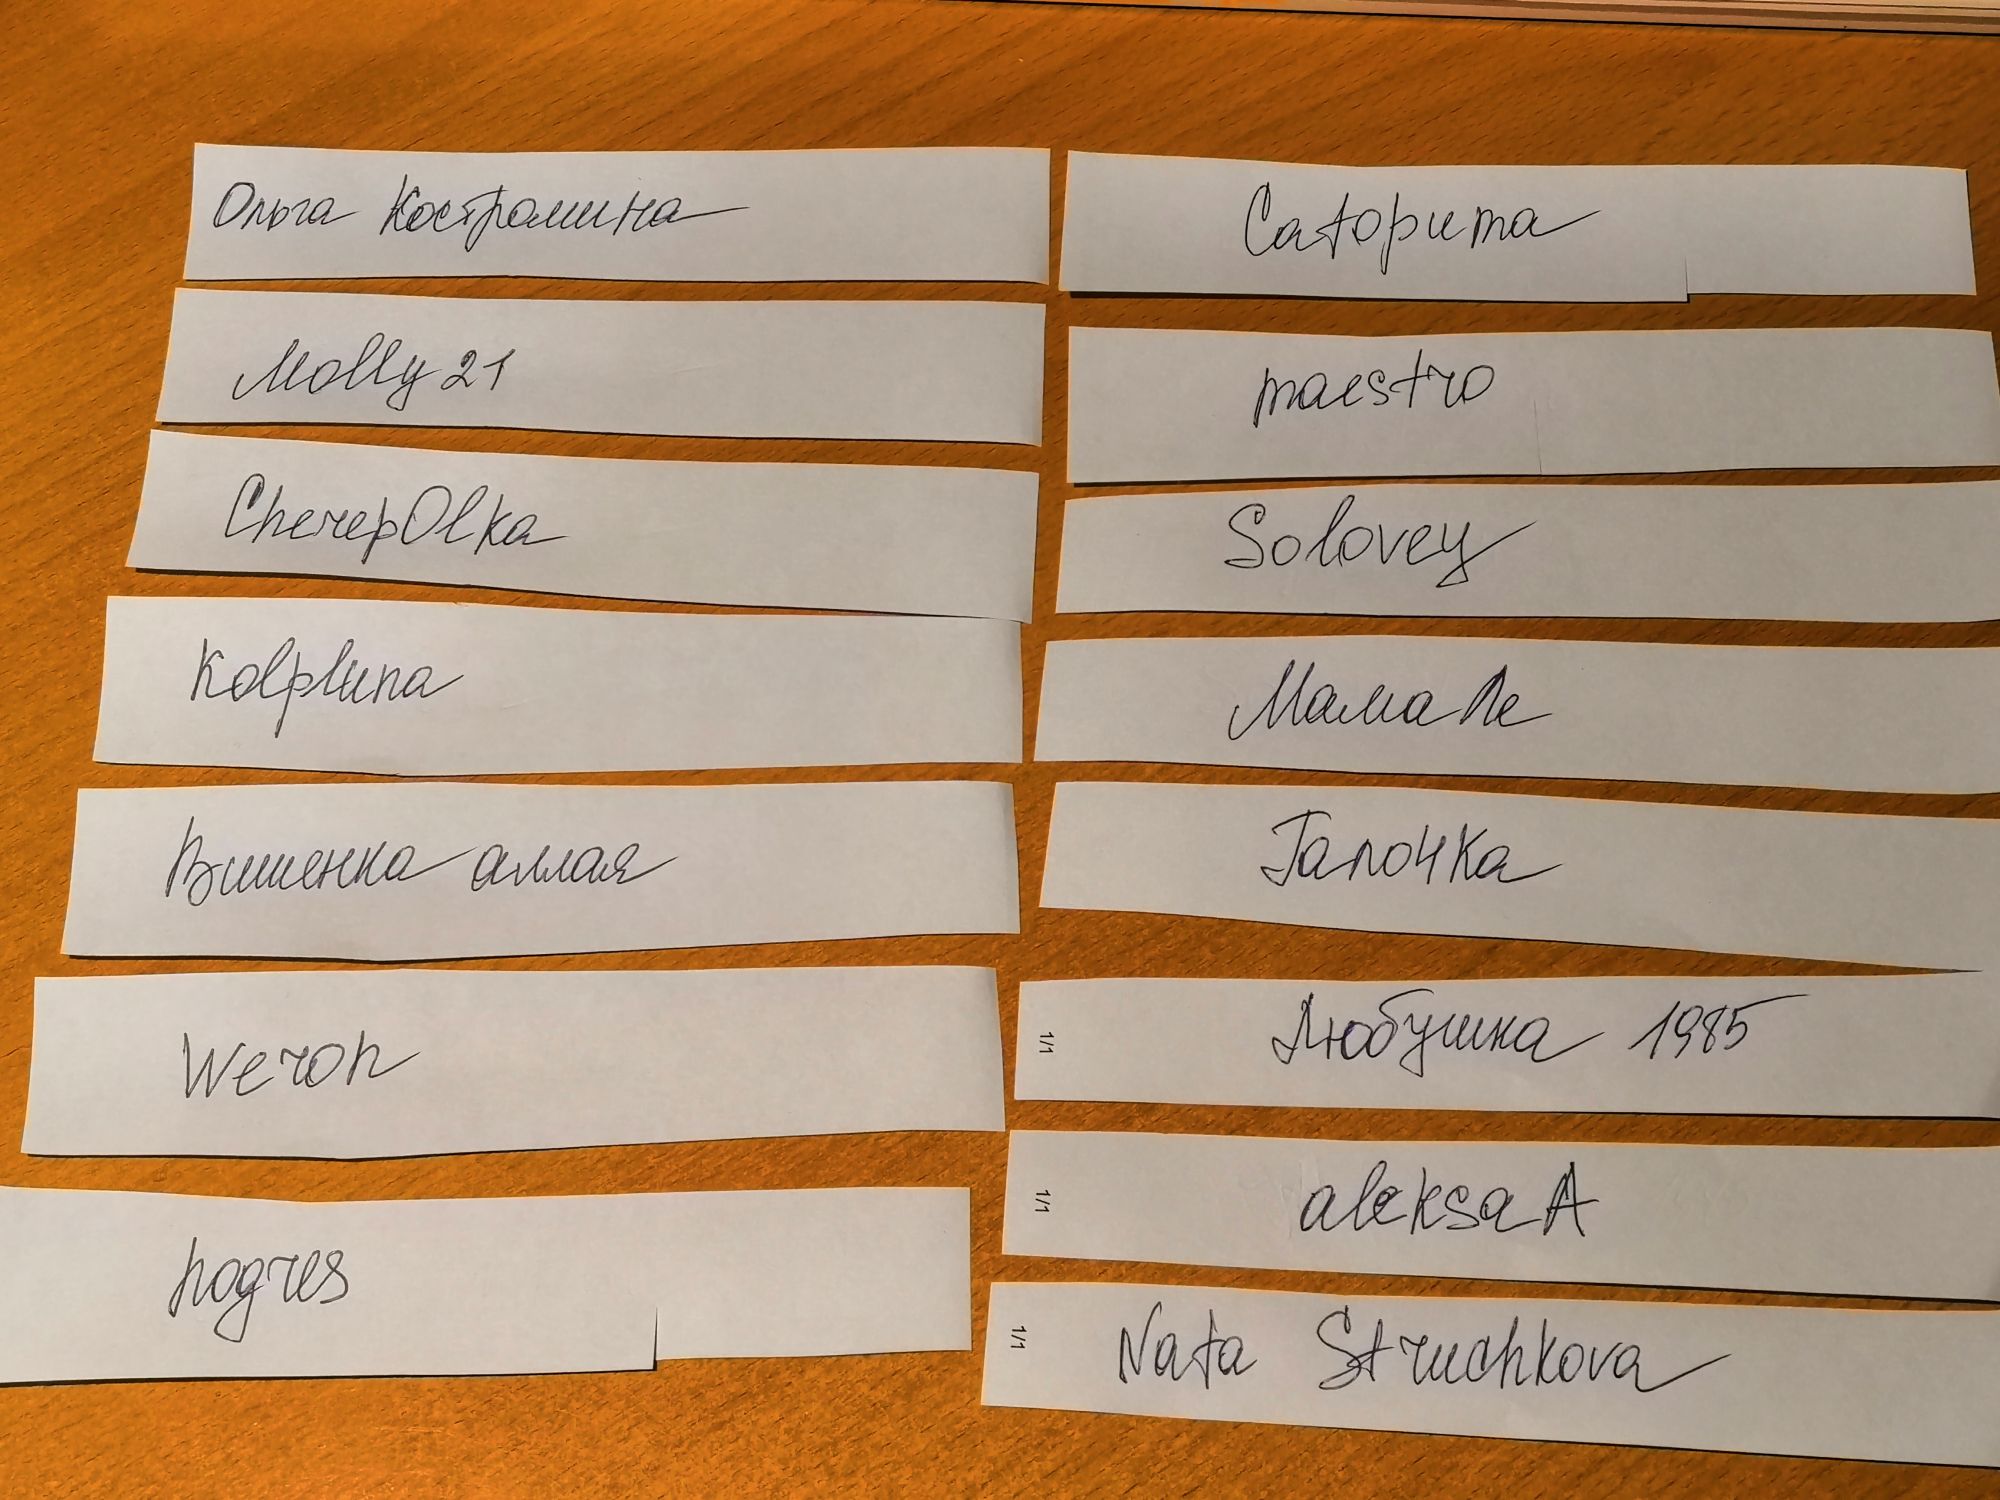 Ольга Костромина
Molly 21
CherepOlka
Kolpluna
Вишенка алмая
Weron
nogres
Саторита
maestro
Solovey
Мама Ле
Галочка
1/1 Любушка 1985
1/1 aleksaA
1/1 Nata Struchkova